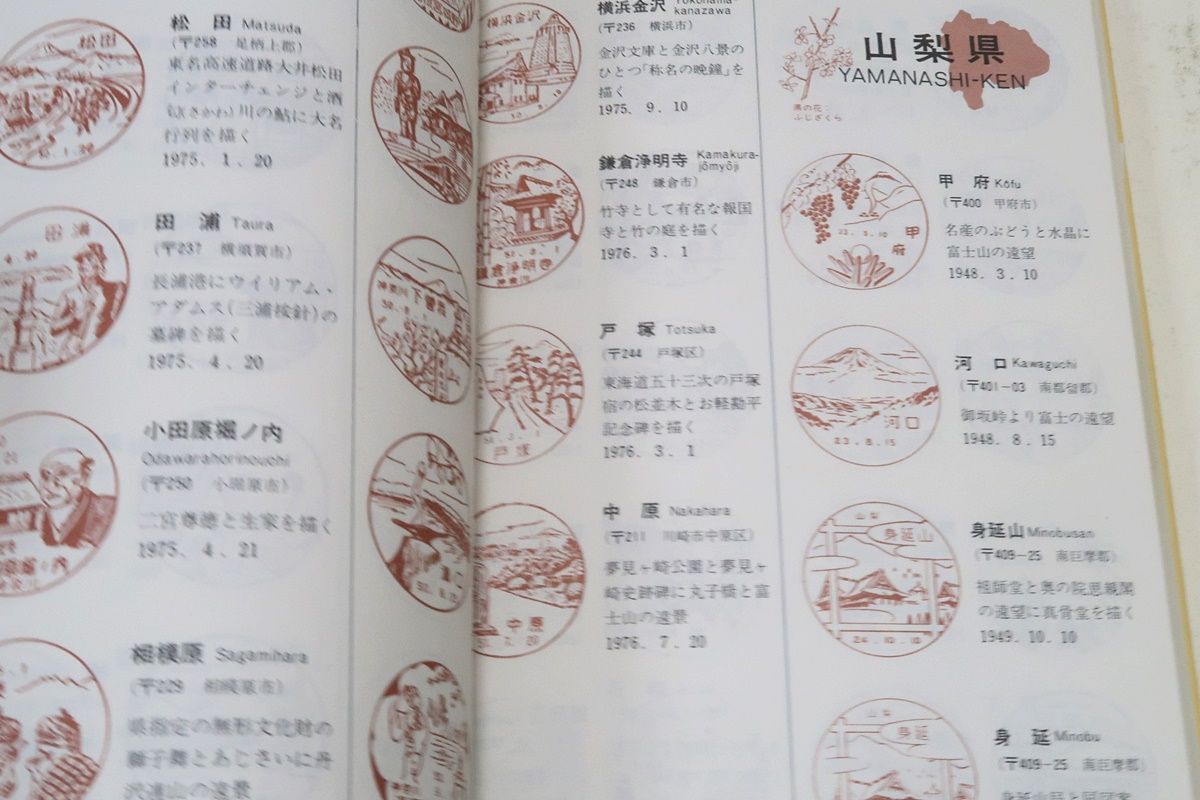 松田 Matsuda
(〒258 足柄上郡)
東名高速道路大井松田
インターチェンジと酒
(さかわ)川の鮎に大名
行列を描く
1975. 1. 20
松田
田浦 Taura
(〒237 横須賀市)
長浦港にウイリアム・
アダムス(三浦按針)の
墓碑を描く
1975. 4. 20
田浦
小田原堀ノ内
Odawarahorinouchi
(〒250 小田原市)
二宮尊徳と生家を描く
1975. 4. 21
相模原 Sagamihara
(〒229 相模原市)
県指定の無形文化財の
獅子舞とあじさいに丹
沢連山の遠景
横浜金沢 Yokohama-
kanazawa
(〒236 横浜市)
金沢文庫と金沢八景の
ひとつ「称名の晩鐘」を
描く
1975. 9. 10
横浜金沢
鎌倉浄明寺 Kamakura-
jōmyōji
(〒248 鎌倉市)
竹寺として有名な報国
寺と竹の庭を描く
1976. 3. 1
鎌倉浄明寺
戸塚 Totsuka
(〒244 戸塚区)
東海道五十三次の戸塚
宿の松並木とお軽勘平
記念碑を描く
1976. 3. 1
戸塚
中原 Nakahara
(〒211 川崎市中原区)
夢見ヶ崎公園と夢見ヶ
崎史跡碑に丸子橋と富
士山の遠景
1976. 7. 20
中原
山梨県
YAMANASHI-KEN
県の花:
ふじざくら
甲府 Kōfu
(〒400 甲府市)
名産のぶどうと水晶に
富士山の遠望
1948. 3. 10
23. 3. 10
甲府
河口 Kawaguchi
(〒401-03 南都留郡)
御坂峠より富士の遠望
1948. 8. 15
河口
23. 8. 15
身延山 Minobusan
(〒409-25 南巨摩郡)
祖師堂と奥の院思親閣
の遠望に真骨堂を描く
1949. 10. 10
山梨
身延山
24. 10. 10
身延 Minobu
(〒409-25 南巨摩郡)
山梨
身延